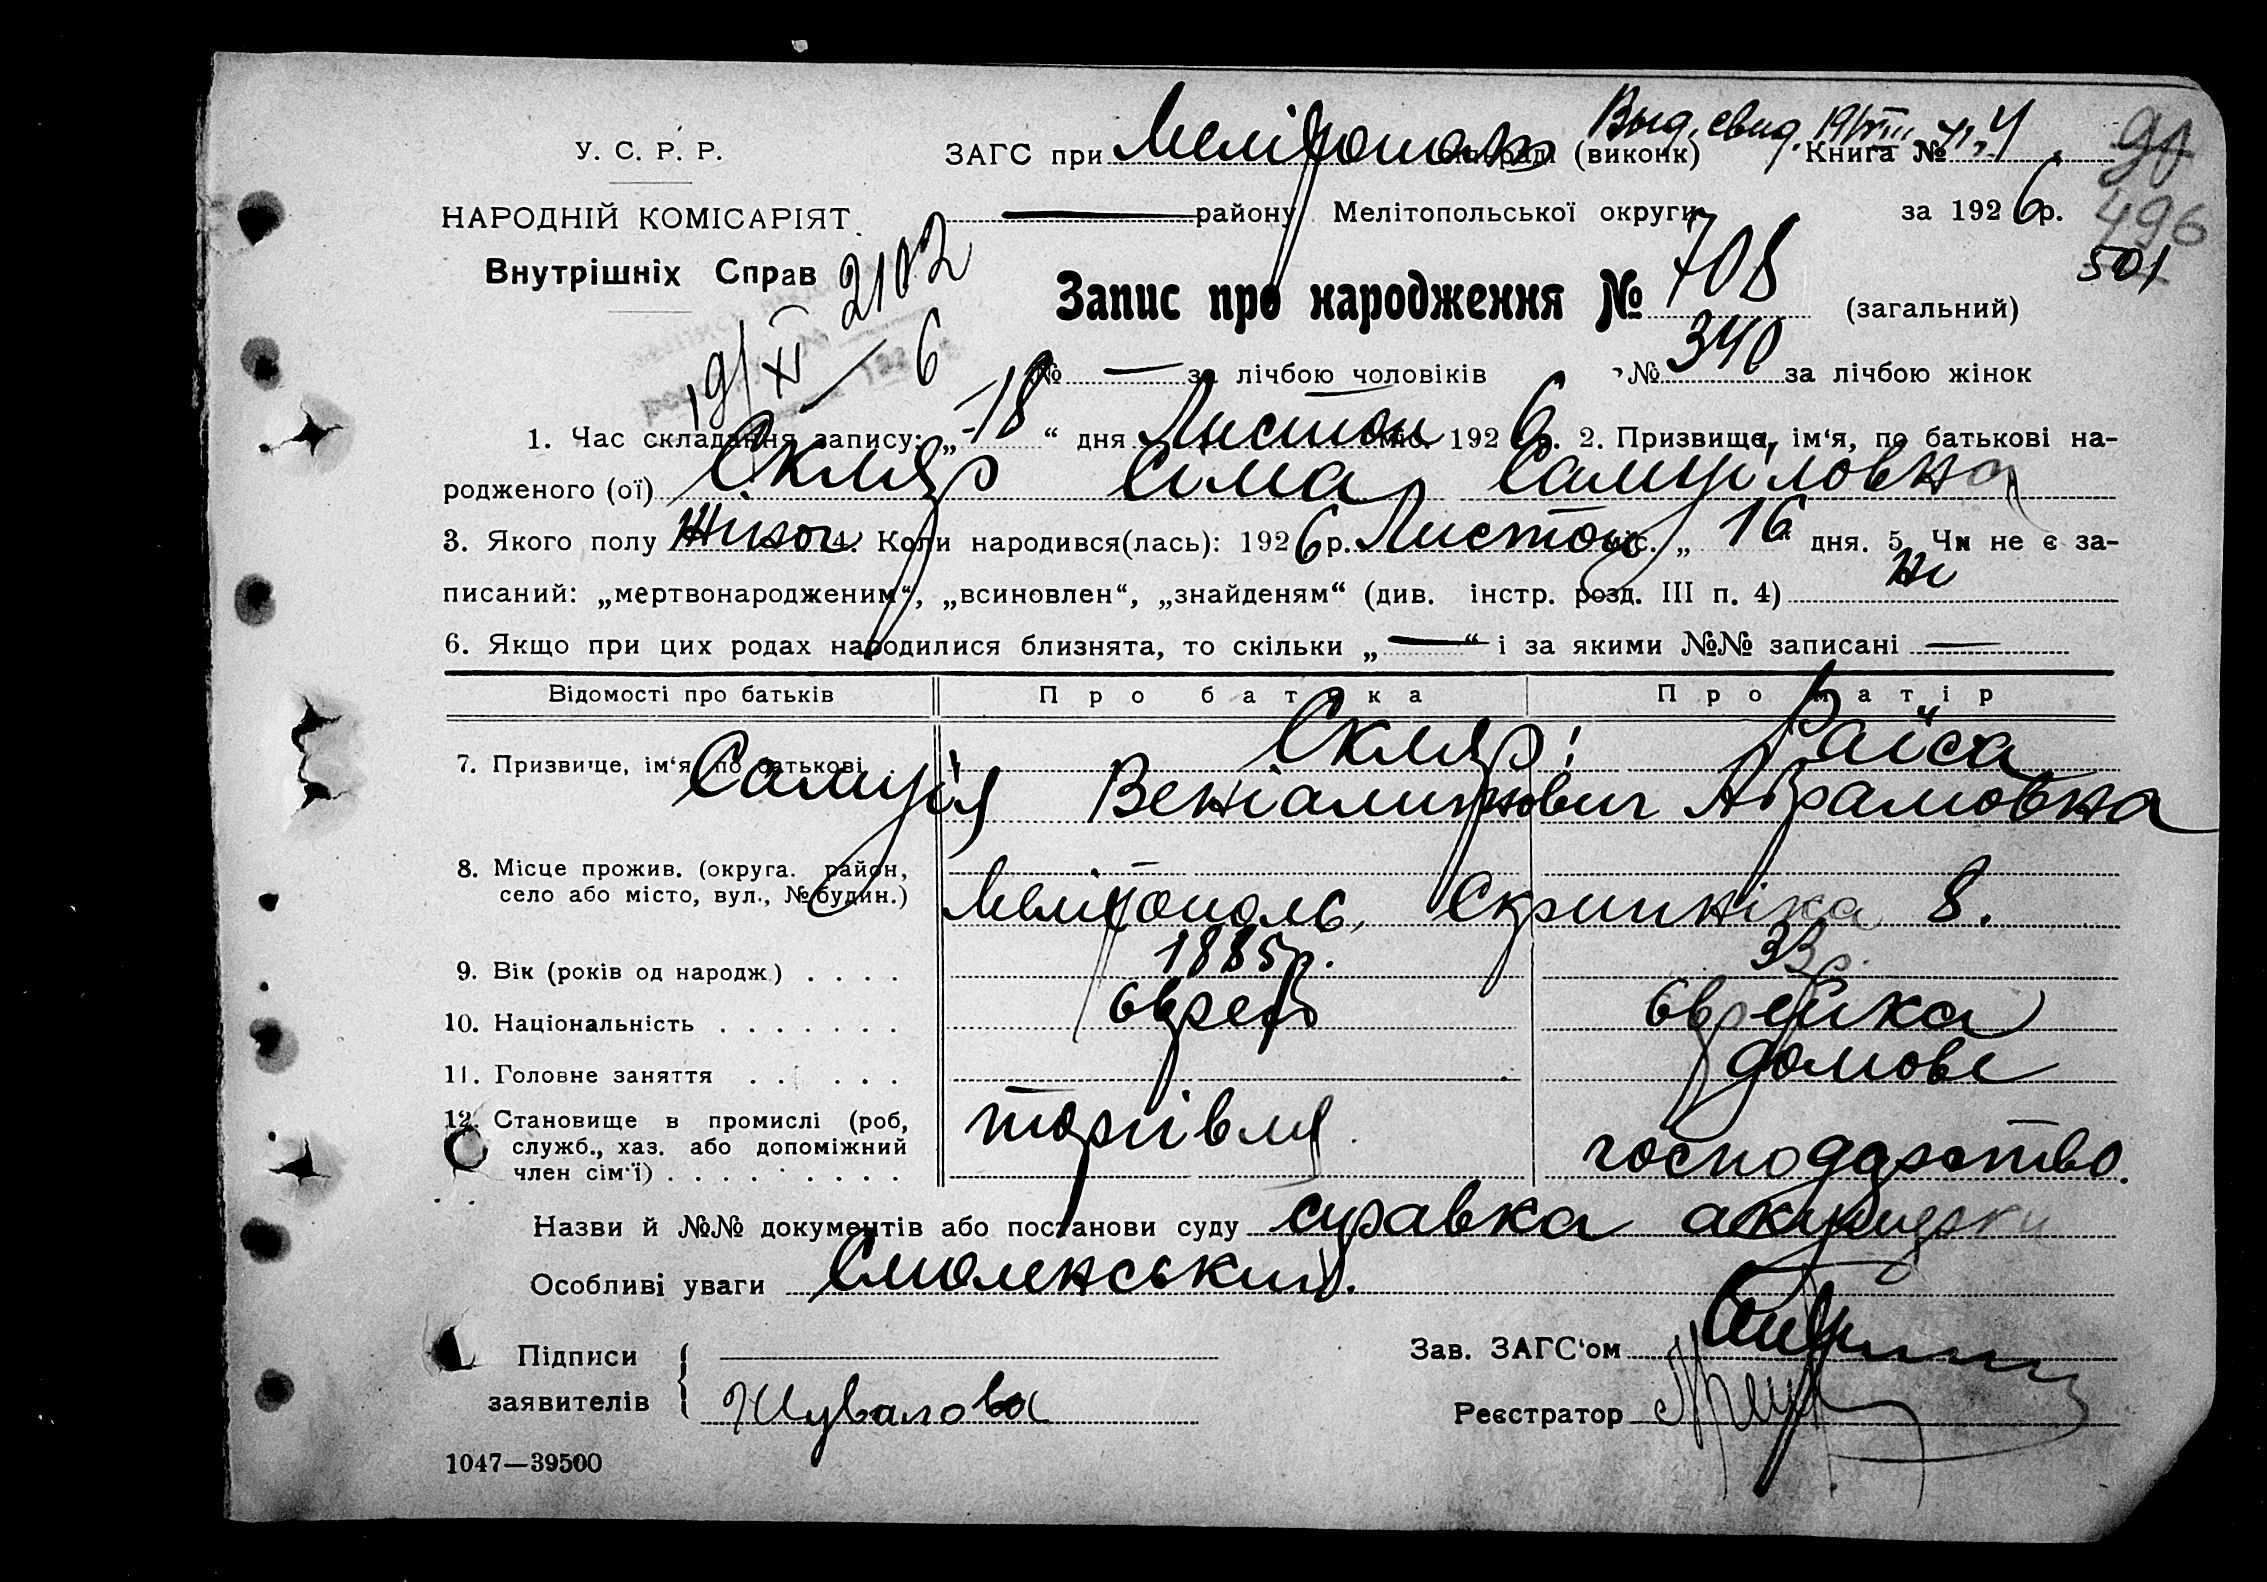 Выд. свид. 19/VIII 41.
У. С. Р. Р. ЗАГС при Мелітополь (виконк) Книга № 4
90
НАРОДНІЙ КОМІСАРІЯТ району Мелітопольської округи за 1926 р.
496
Внутрішніх Справ
2102
501
Запис про народження № 708 (загальний)
19/XI — 6
№ — за лічбою чоловіків № 340 за лічбою жінок
1. Час складання запису: „18“ дня Листоп міс. 1926 р. 2. Призвище, ім‘я, по батькові на-
родженого (ої) Скляр Сима Самуіловна
3. Якого полу жіноч 4. Коли народився(лась): 1926 р. Листоп міс. „16“ дня. 5. Чи не є за-
писаний: „мертвонародженим“, „всиновлен“, „знайденям“ (див. інстр. розд. III п. 4) ні
6. Якщо при цих родах народилися близнята, то скільки „—“ і за якими №№ записані —
Відомості про батьків Про батька Про матір
7. Призвище, ім‘я, по батькові Скляр: Раїса
Самуїл Веніамінович Абрамовна
8. Місце прожив. (округа. район,
село або місто, вул., № будин.) Мелітополь, Скрипніка 8.
9. Вік (років од народж.) . . . . 1885 р. 33 р.
10. Національність . . . . . . . єврей єврейка
11. Головне заняття . . . . . . домове
12. Становище в промислі (роб,
служб., хаз. або допоміжний торгівля господарство.
член сім‘ї) . . . . . . . .
Назви й №№ документів або постанови суду справка акушерки
Особливі уваги Смоленський.
Підписи
заявителів Шувалова
Зав. ЗАГС‘ом
Реєстратор
1047—39500